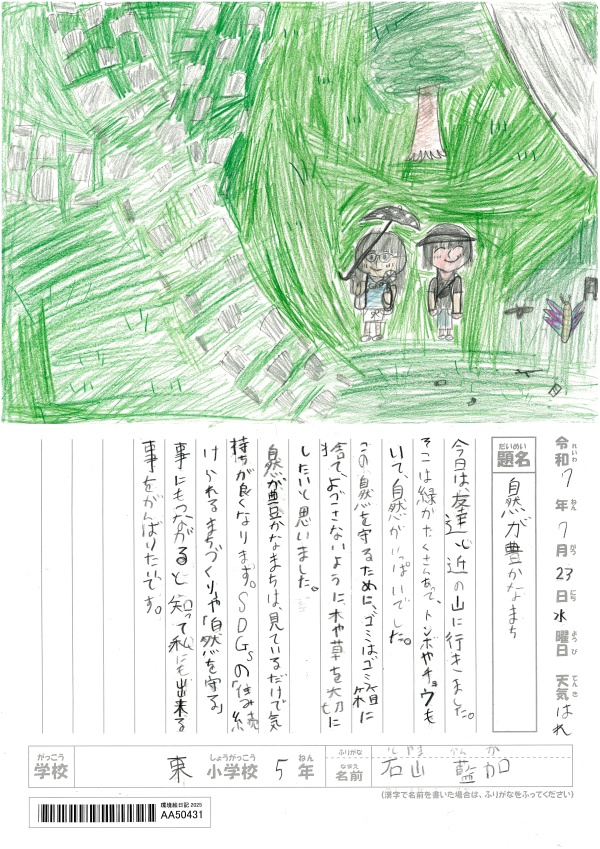 令和7年7月23日水曜日 天気はれ
れいわ ねん がつ にち ようび てんき
だいめい
題名 自然が豊かなまち
今日は、友達と近の山に行きました。
そこは緑がたくさんあって、トンボやチョウも
いて、自然がいっぱいでした。
この自然を守るために、ゴミは、ゴミ箱に
捨て、よごさないように、木や草を大切に
したいと思いました。
自然が豊かなまちは、見ているだけで気
持ちが良くなります。SDGsの「住み続
けられるまちづくり」や「自然を守る」
事にもつながると知って私にも出来る
事をがんばりたいです。
がっこう しょうがっこう ねん ふりがな
学校 東小学校5年
なまえ
名前 石山藍加
(漢字で名前を書いた場合は、ふりがなをふってください)
環境絵日記2025
AA50431